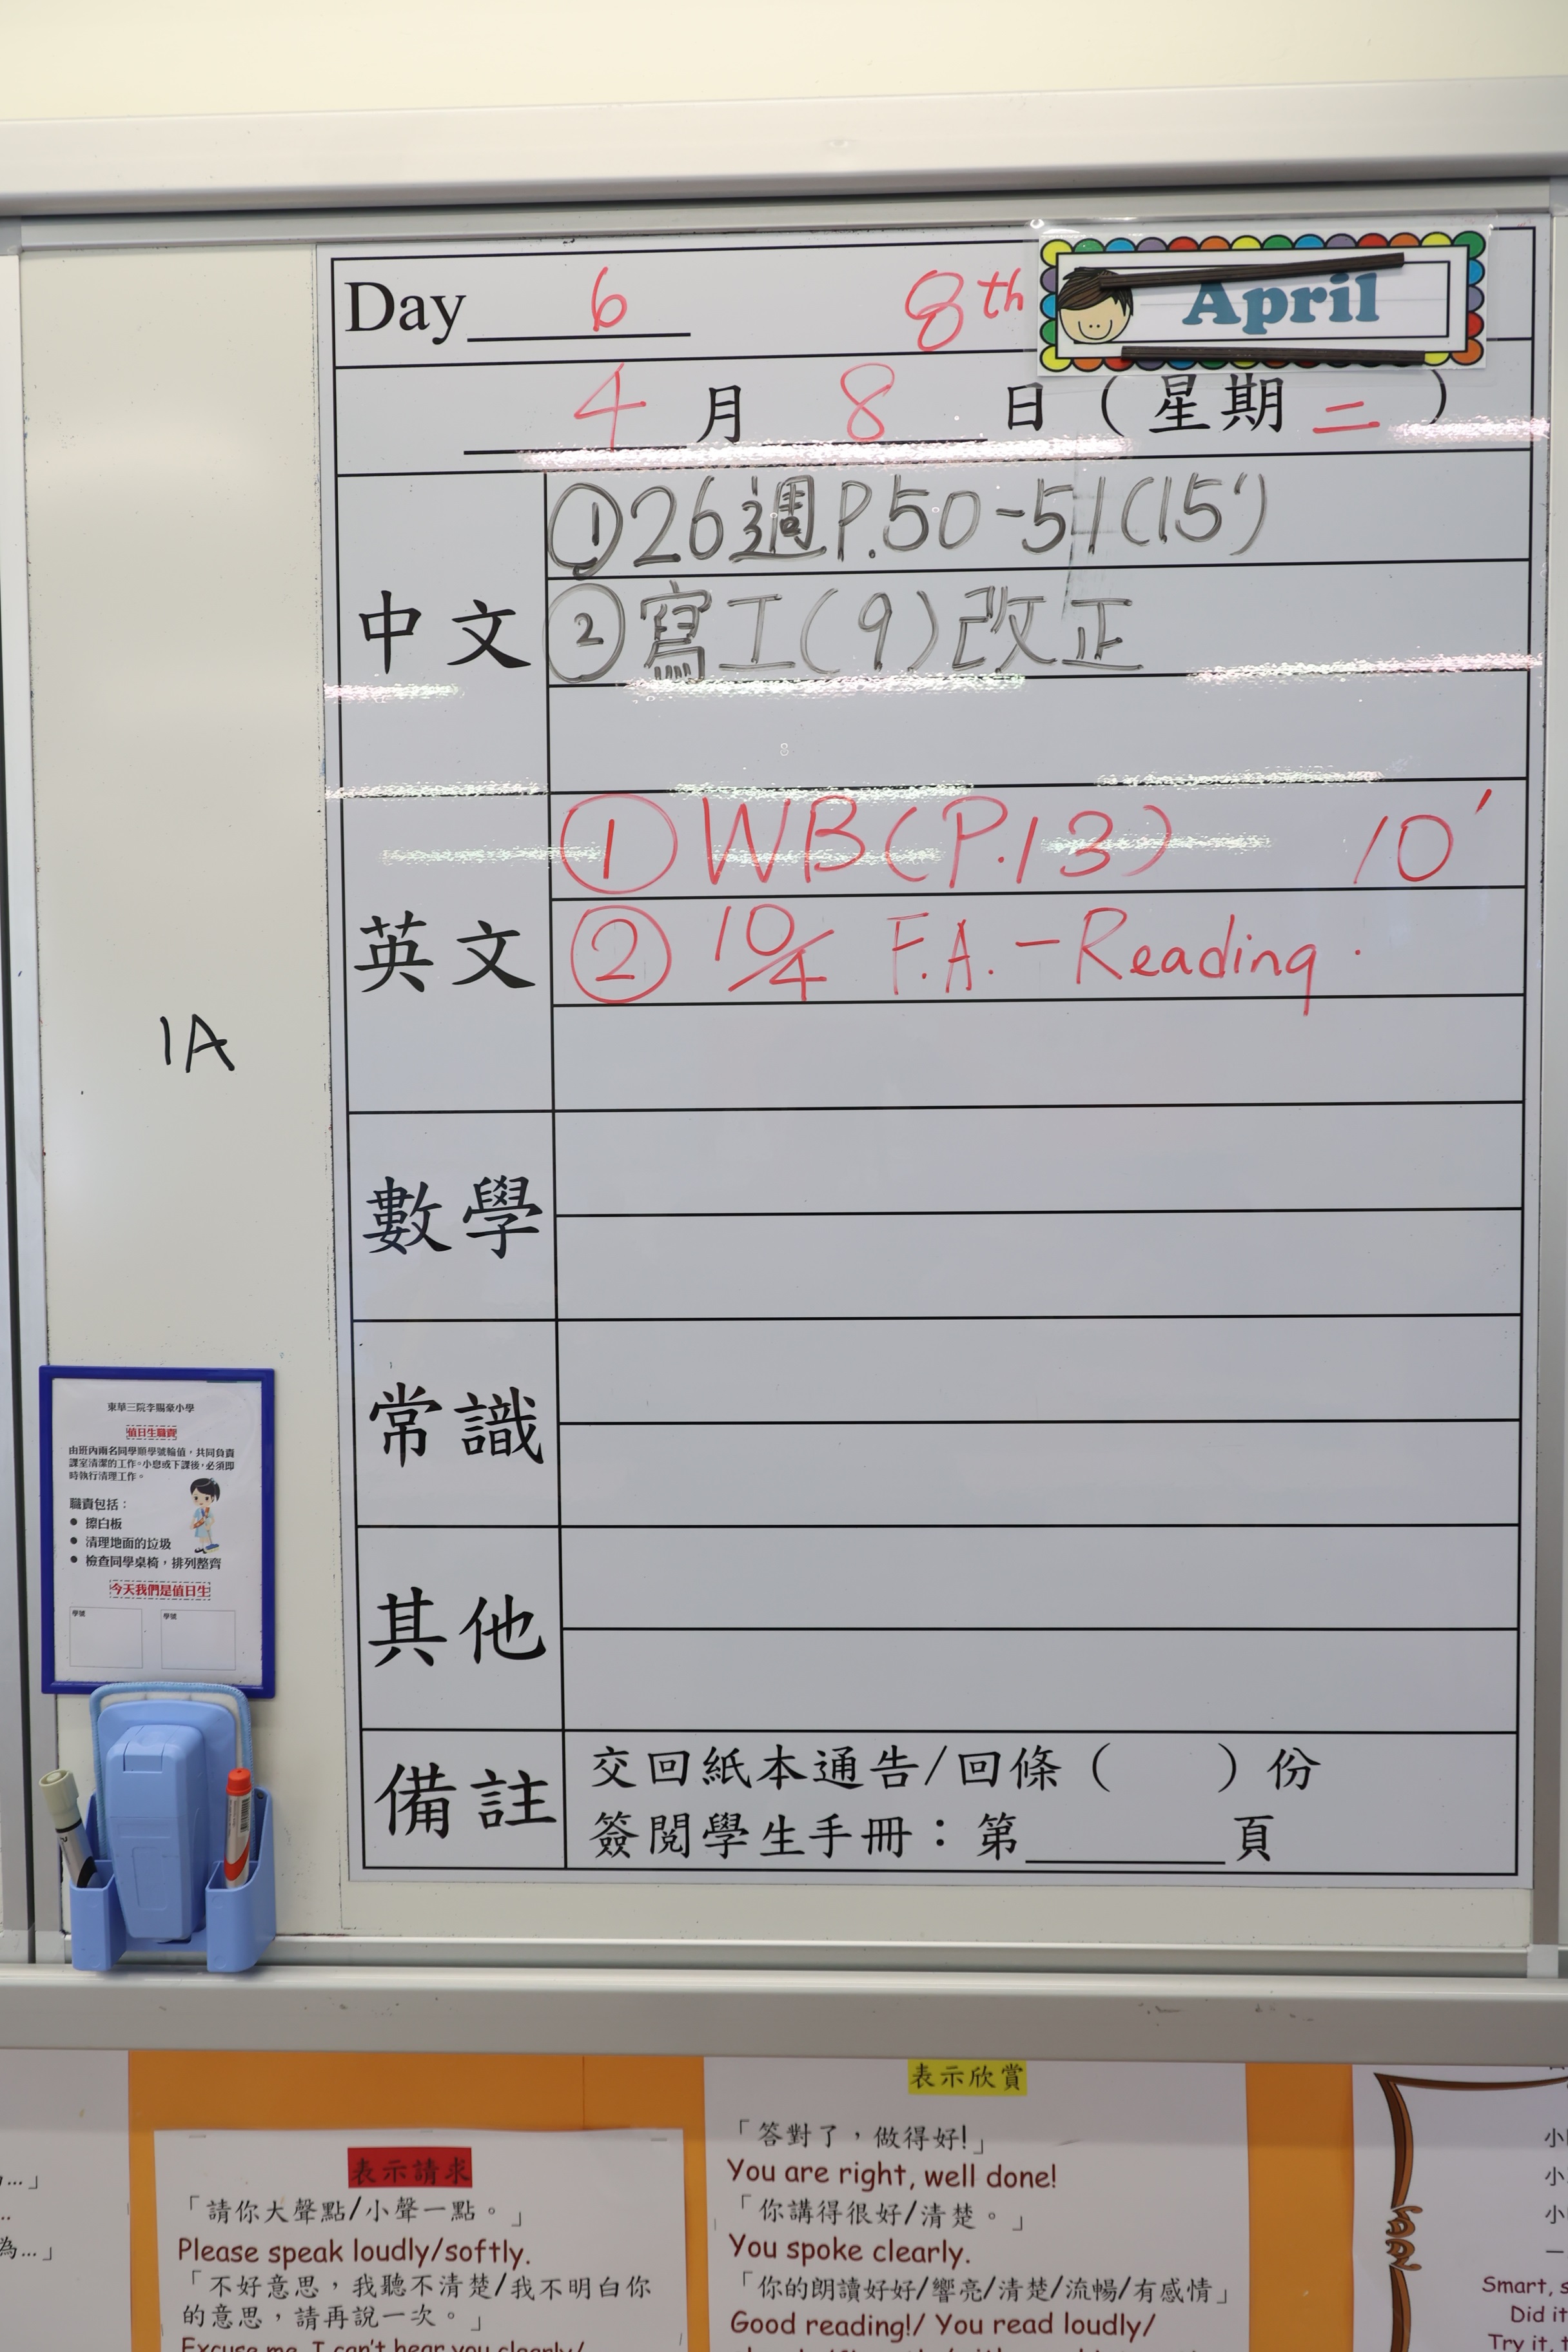 Day 6 8th April
4 月 8 日 ( 星期 二 )
中文
①26週P.50-51(15')
②寫工(9)改正
英文
① WB(P.13) 10'
② 10/4 F.A. - Reading.
1A
數學
常識
其他
備註
交回紙本通告/回條 ( ) 份
簽閱學生手冊：第______頁
東華三院李賜豪小學
值日生職責
由班內兩名同學順學號輪值，共同負責
課室清潔的工作。小息或下課後，必須即
時執行清理工作。
職責包括：
● 擦白板
● 清理地面的垃圾
● 檢查同學桌椅，排列整齊
今天我們是值日生
學號 學號
...」
..
為...」
表示請求
「請你大聲點/小聲一點。」
Please speak loudly/softly.
「不好意思，我聽不清楚/我不明白你
的意思，請再說一次。」
Excuse me, I can't hear you clearly/
表示欣賞
「答對了，做得好!」
You are right, well done!
「你講得很好/清楚。」
You spoke clearly.
「你的朗讀好好/響亮/清楚/流暢/有感情」
Good reading!/ You read loudly/
小
小
小
一
Smart, s
Did it
Try it,